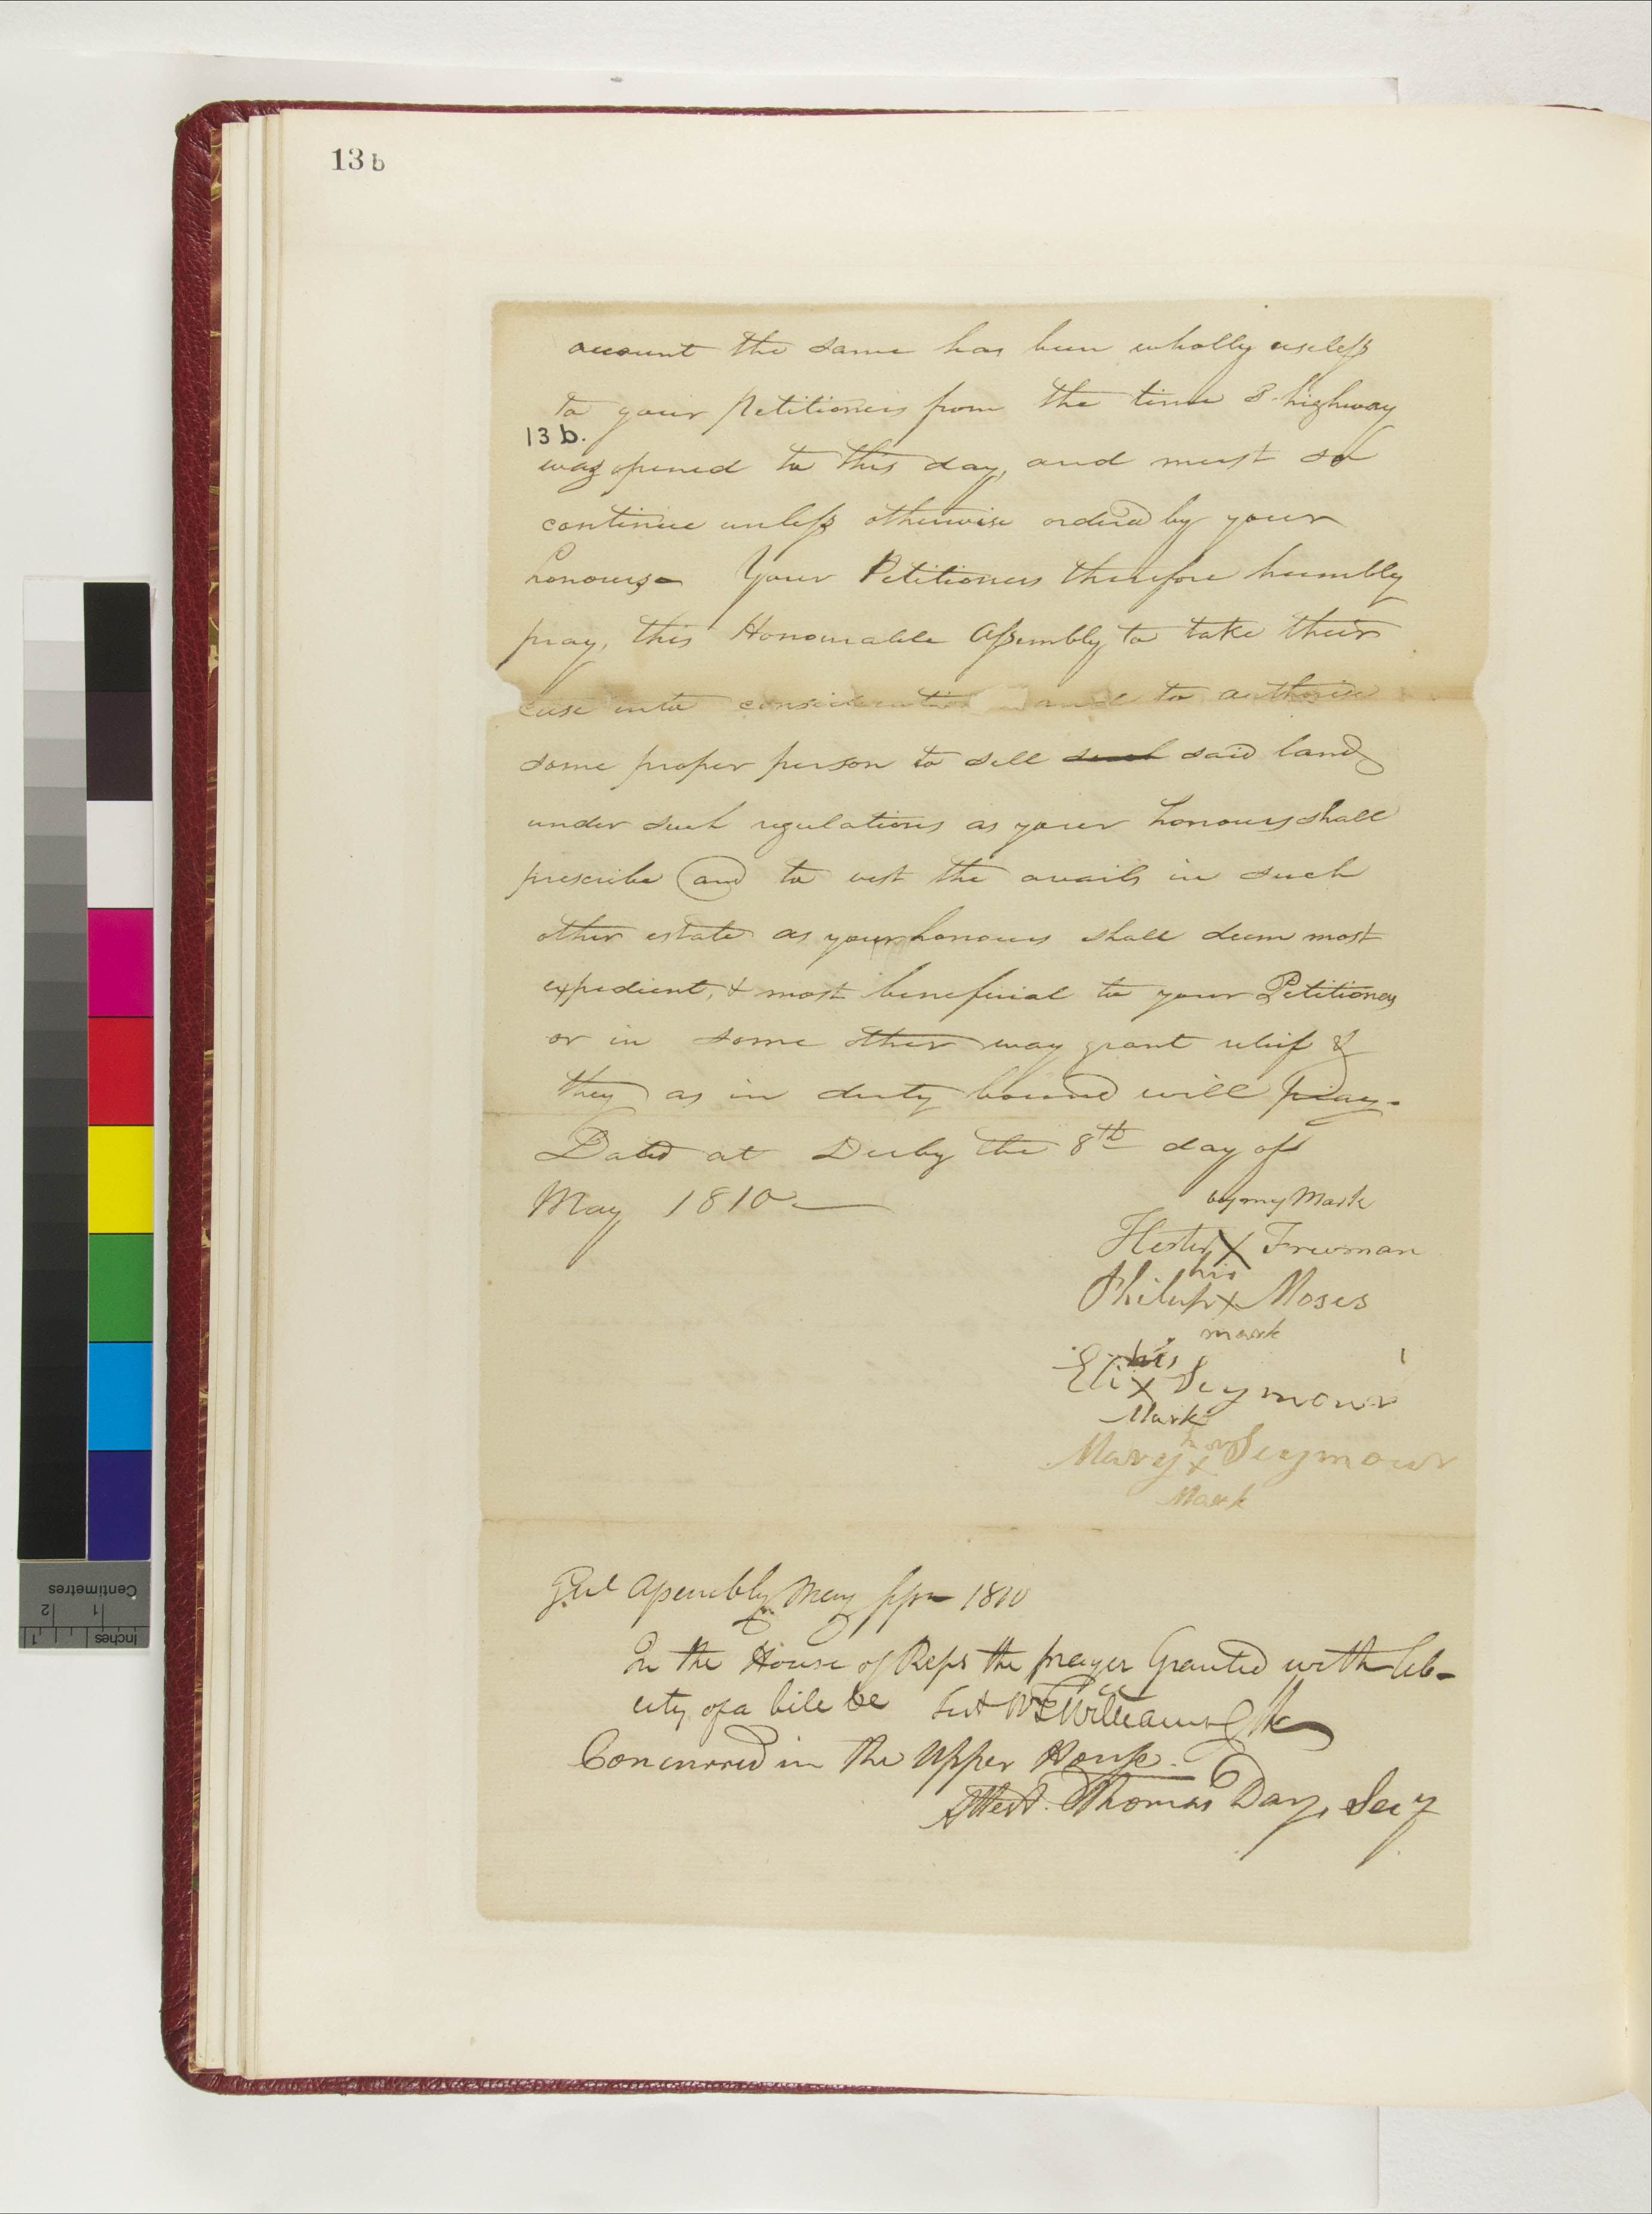 13 b
account the same has been wholly useless
to your Petitioners from the time sd highway
13 b.
was opened to this day, and must so
continue unless otherwise ordered by your
honours— Your Petitioners therefore humbly
pray, this Honourable Assembly to take their
case into consideration and to authorise
some proper person to sell such said land
under such regulations as your honours shall
prescribe and to vest the avails in such
other estate as your honours shall deem most
expedient, & most beneficial to your Petitioners
or in some other way grant relief &
they as in duty bound will pray.
Dated at Derby the 8th day of
May 1810—
by my Mark
Hester X Freeman
his
Philip X Moses
mark
his
Eli X Seymour
Mark
her
Mary X Seymour
Mark
Genl Assembly May 1810
In the House of Reps the prayer Granted with lib-
erty of a bill &c Williams Clk
Concurred in the Upper House.
Attest. Thomas Day, Secy
Centimetres
1 2
Inches
1